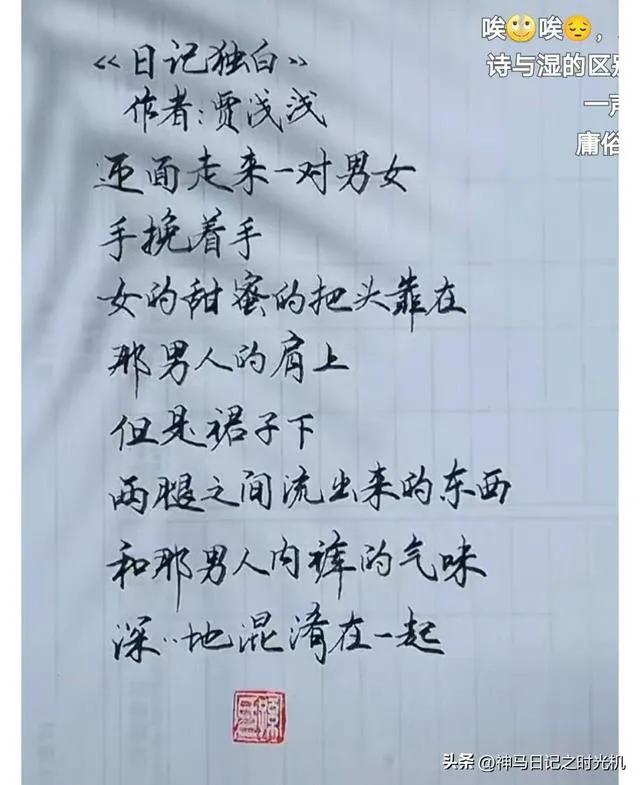 《日记独白》
作者:贾浅浅
迎面走来一对男女
手挽着手
女的甜蜜的把头靠在
那男人的肩上
但是裙子下
两腿之间流出来的东西
和那男人内裤的气味
深深地混淆在一起
唉🙄唉😔,
诗与湿的区别
一声
庸俗
头条 @神马日记之时光机